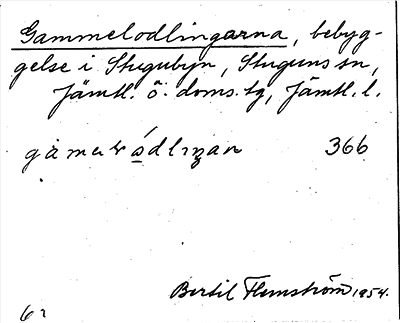 Gammelodlingarna, bebyg-
gelse i Stugubyn, Stuguns sn,
Jämtl. ö. doms.tg, Jämtl. l.
366
Bertil Flemström 1954.